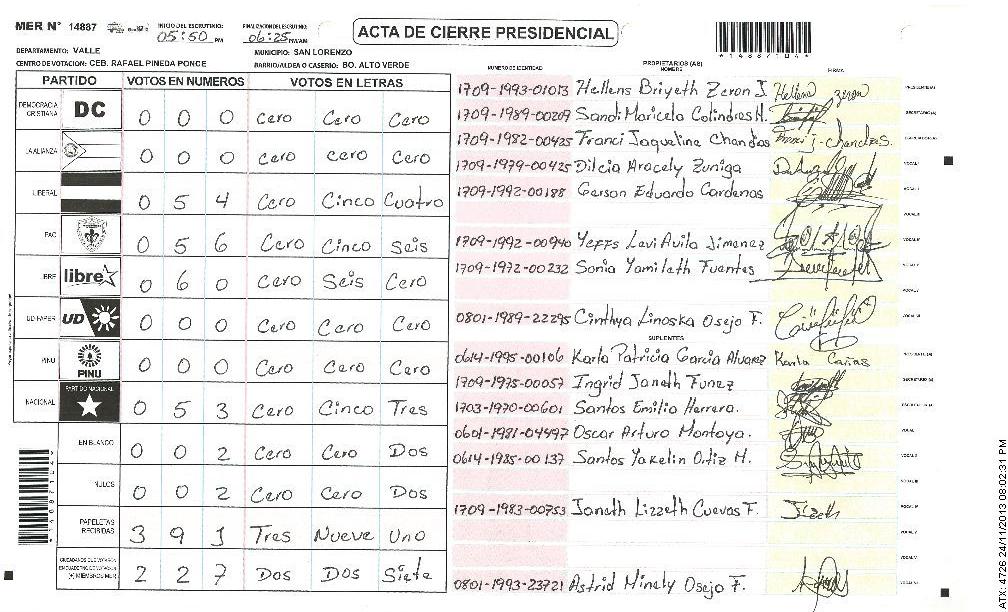 MER N° 14887 INICIO DEL ESCRUTINIO: 05:50 PM FINALIZACION DEL ESCRUTINIO: 06:25 PM/AM ACTA DE CIERRE PRESIDENCIAL
DEPARTAMENTO: VALLE MUNICIPIO: SAN LORENZO
CENTRO DE VOTACION: CEB. RAFAEL PINEDA PONCE BARRIO/ALDEA O CASERIO: BO. ALTO VERDE
PARTIDO VOTOS EN NUMEROS VOTOS EN LETRAS
DEMOCRACIA CRISTIANA DC 0 0 0 Cero Cero Cero
LA ALIANZA 0 0 0 Cero Cero Cero
LIBERAL 0 5 4 Cero Cinco Cuatro
PAC 0 5 6 Cero Cinco Seis
libre 0 6 0 Cero Seis Cero
UD FAPER UD 0 0 0 Cero Cero Cero
PINU PINU 0 0 0 Cero Cero Cero
NACIONAL PARTIDO NACIONAL 0 5 3 Cero Cinco Tres
EN BLANCO 0 0 2 Cero Cero Dos
NULOS 0 0 2 Cero Cero Dos
PAPELETAS RECIBIDAS 3 9 1 Tres Nueve Uno
(+) MIEMBROS MER 2 2 7 Dos Dos Siete
NUMERO DE IDENTIDAD PROPIETARIOS (AS) NOMBRE FIRMA
1709-1993-01013 Hellens Briyeth Zeron J. Hellens zeron
1709-1989-00209 Sandi Maricela Colindres H.
1709-1982-00425 Franci Jaqueline Chandias
1709-1979-00425 Dilcia Aracely Zuniga
1709-1992-00188 Gerson Eduardo Cardenas
1709-1992-00940 Yeffs Levi Avila Jimenez
1709-1972-00232 Sonia Yamileth Fuentes
0801-1989-22295 Cinthya Linoska Osejo F.
SUPLENTES
0614-1995-00106 Karla Patricia Garcia Alvarez Karla Cañas
1709-1975-00057 Ingrid Janeth Funez
1703-1970-00601 Santos Emilio Herrera.
0601-1981-04497 Oscar Arturo Montoya.
0614-1985-00137 Santos Yakelin Ortiz M.
1709-1983-00753 Janeth Lizzeth Cuevas F.
0801-1993-23721 Astrid Minely Osejo F.
ATX 4726 24/11/2013 08:02:31 PM